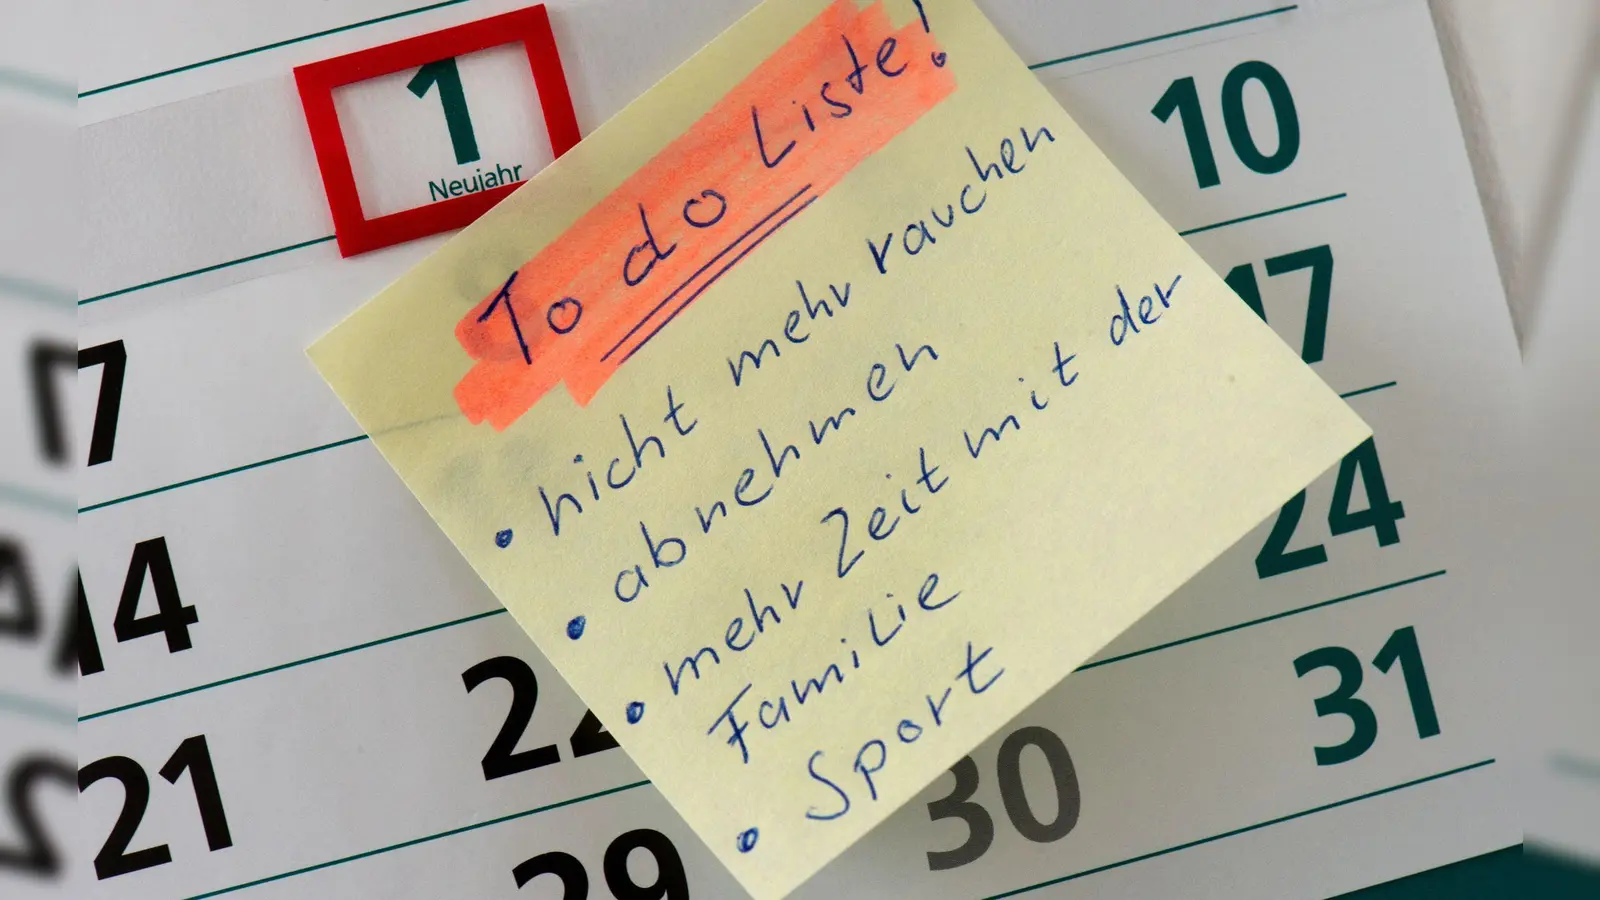 1
Neujahr
To do Liste!
• nicht mehr rauchen
• abnehmen
• mehr Zeit mit der
Familie
• Sport
10
17
24
31
7
14
21
29
30